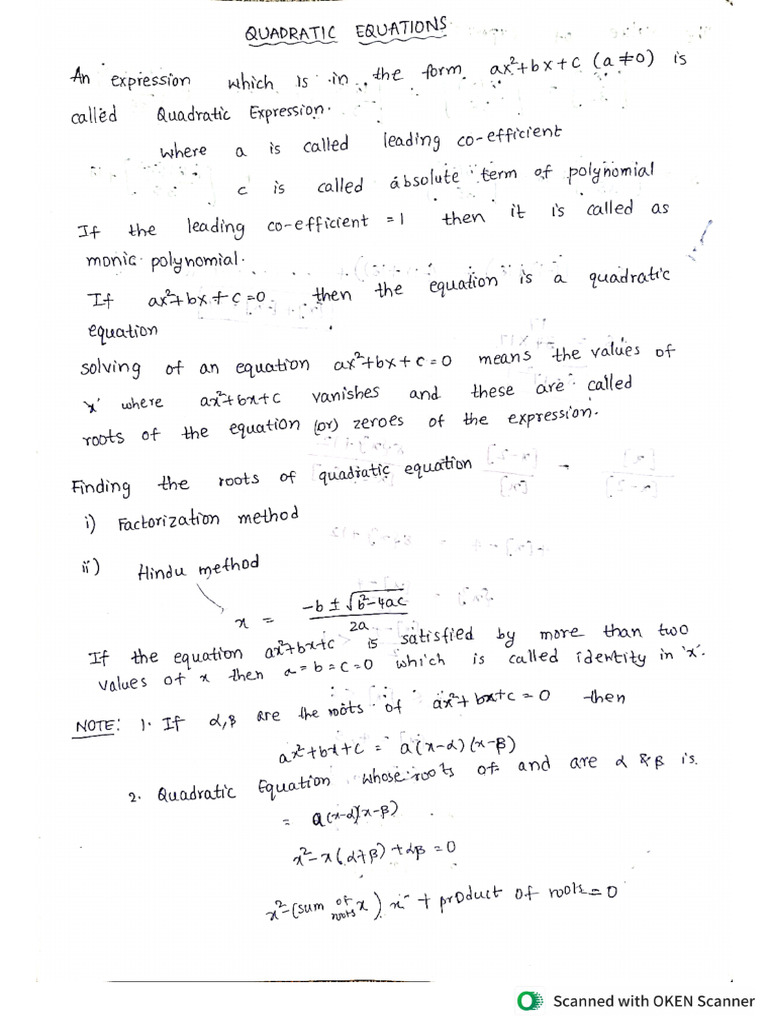 QUADRATIC EQUATIONS
An expression which is in the form ax²+bx+c (a≠0) is
called Quadratic Expression.
where a is called leading co-efficient
c is called absolute term of polynomial
If the leading co-efficient =1 then it is called as
monic polynomial.
If ax²+bx+c=0 then the equation is a quadratic
equation
solving of an equation ax²+bx+c=0 means the values of
'x' where ax²+bx+c vanishes and these are called
roots of the equation (or) zeroes of the expression.
Finding the roots of quadratic equation
i) Factorization method
ii) Hindu method
x = (-b ± √(b²-4ac))/2a
If the equation ax²+bx+c is satisfied by more than two
values of x then a=b=c=0 which is called identity in 'x'.
NOTE: 1. If α,β are the roots of ax²+bx+c=0 then
ax²+bx+c = a(x-α)(x-β)
2. Quadratic Equation whose roots of and are α & β is.
= a(x-α)(x-β)
x²-x(α+β)+αβ=0
x²-(sum of roots x) x + product of roots=0
Scanned with OKEN Scanner